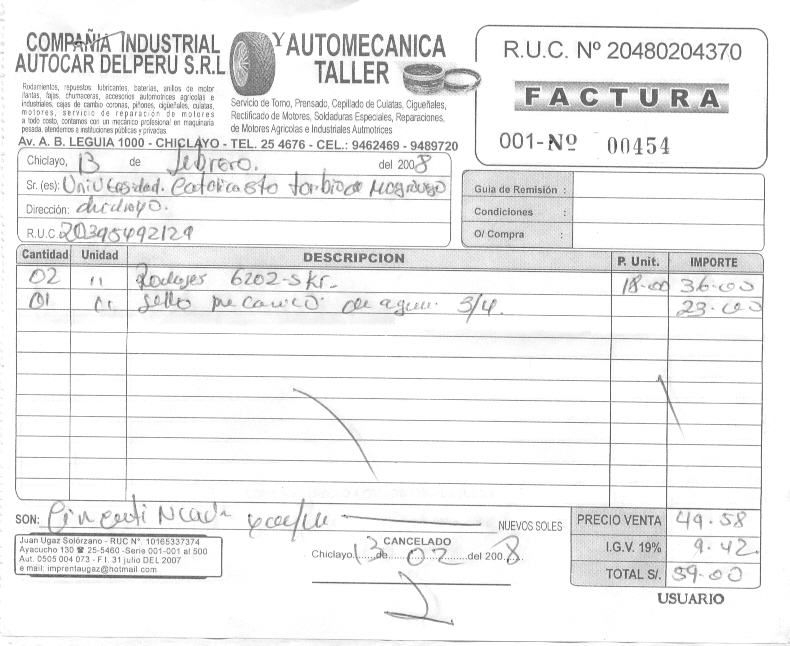 COMPAÑIA INDUSTRIAL
AUTOCAR DELPERU S.R.L
Y AUTOMECANICA
TALLER
Rodamientos, repuestos lubricantes, baterias, anillos de motor
llantas, fajas, chumaceras, accesorios automotrices agricolas e
industriales, cajas de cambio coronas, piñones, cigüeñales, culatas,
motores, servicio de reparación de motores
a todo costo, contamos con un mecánico profesional en maquinaria
pesada, atendemos a instituciones públicas y privadas.
Servicio de Torno, Prensado, Cepillado de Culatas, Cigueñales,
Rectificado de Motores, Soldaduras Especiales, Reparaciones,
de Motores Agricolas e Industriales Autmotrices
Av. A. B. LEGUIA 1000 - CHICLAYO - TEL. 25 4676 - CEL.: 9462469 - 9489720
R.U.C. Nº 20480204370
FACTURA
001-Nº 00454
Chiclayo, 13 de febrero. del 2008
Sr. (es): Universidad. Catolica sto toribio de Mogrovejo
Dirección: chiclayo.
R.U.C. 20395492129
Guia de Remisión :
Condiciones :
O/ Compra :
Cantidad Unidad DESCRIPCION P. Unit. IMPORTE
02 ,, Rodajes 6202-SKF- 18-00 36-00
01 ,, sello mecanico de agua 3/4. 23-00
SON: Cincuenti Nueve NUEVOS SOLES
PRECIO VENTA 49.58
I.G.V. 19% 9.42
TOTAL S/. 59-00
Juan Ugaz Solórzano - RUC N°. 10165337374
Ayacucho 130 ☎ 25-5460 -Serie 001-001 al 500
Aut. 0505 004 073 - F I. 31 julio DEL 2007
e mail: imprentaugaz@hotmail.com
CANCELADO
Chiclayo,13 de 02 del 2008.
USUARIO